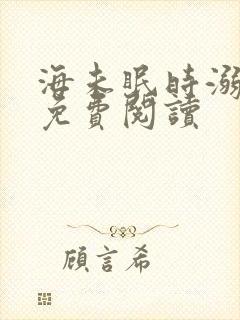 海未眠時溺
免費閱讀
顧言希